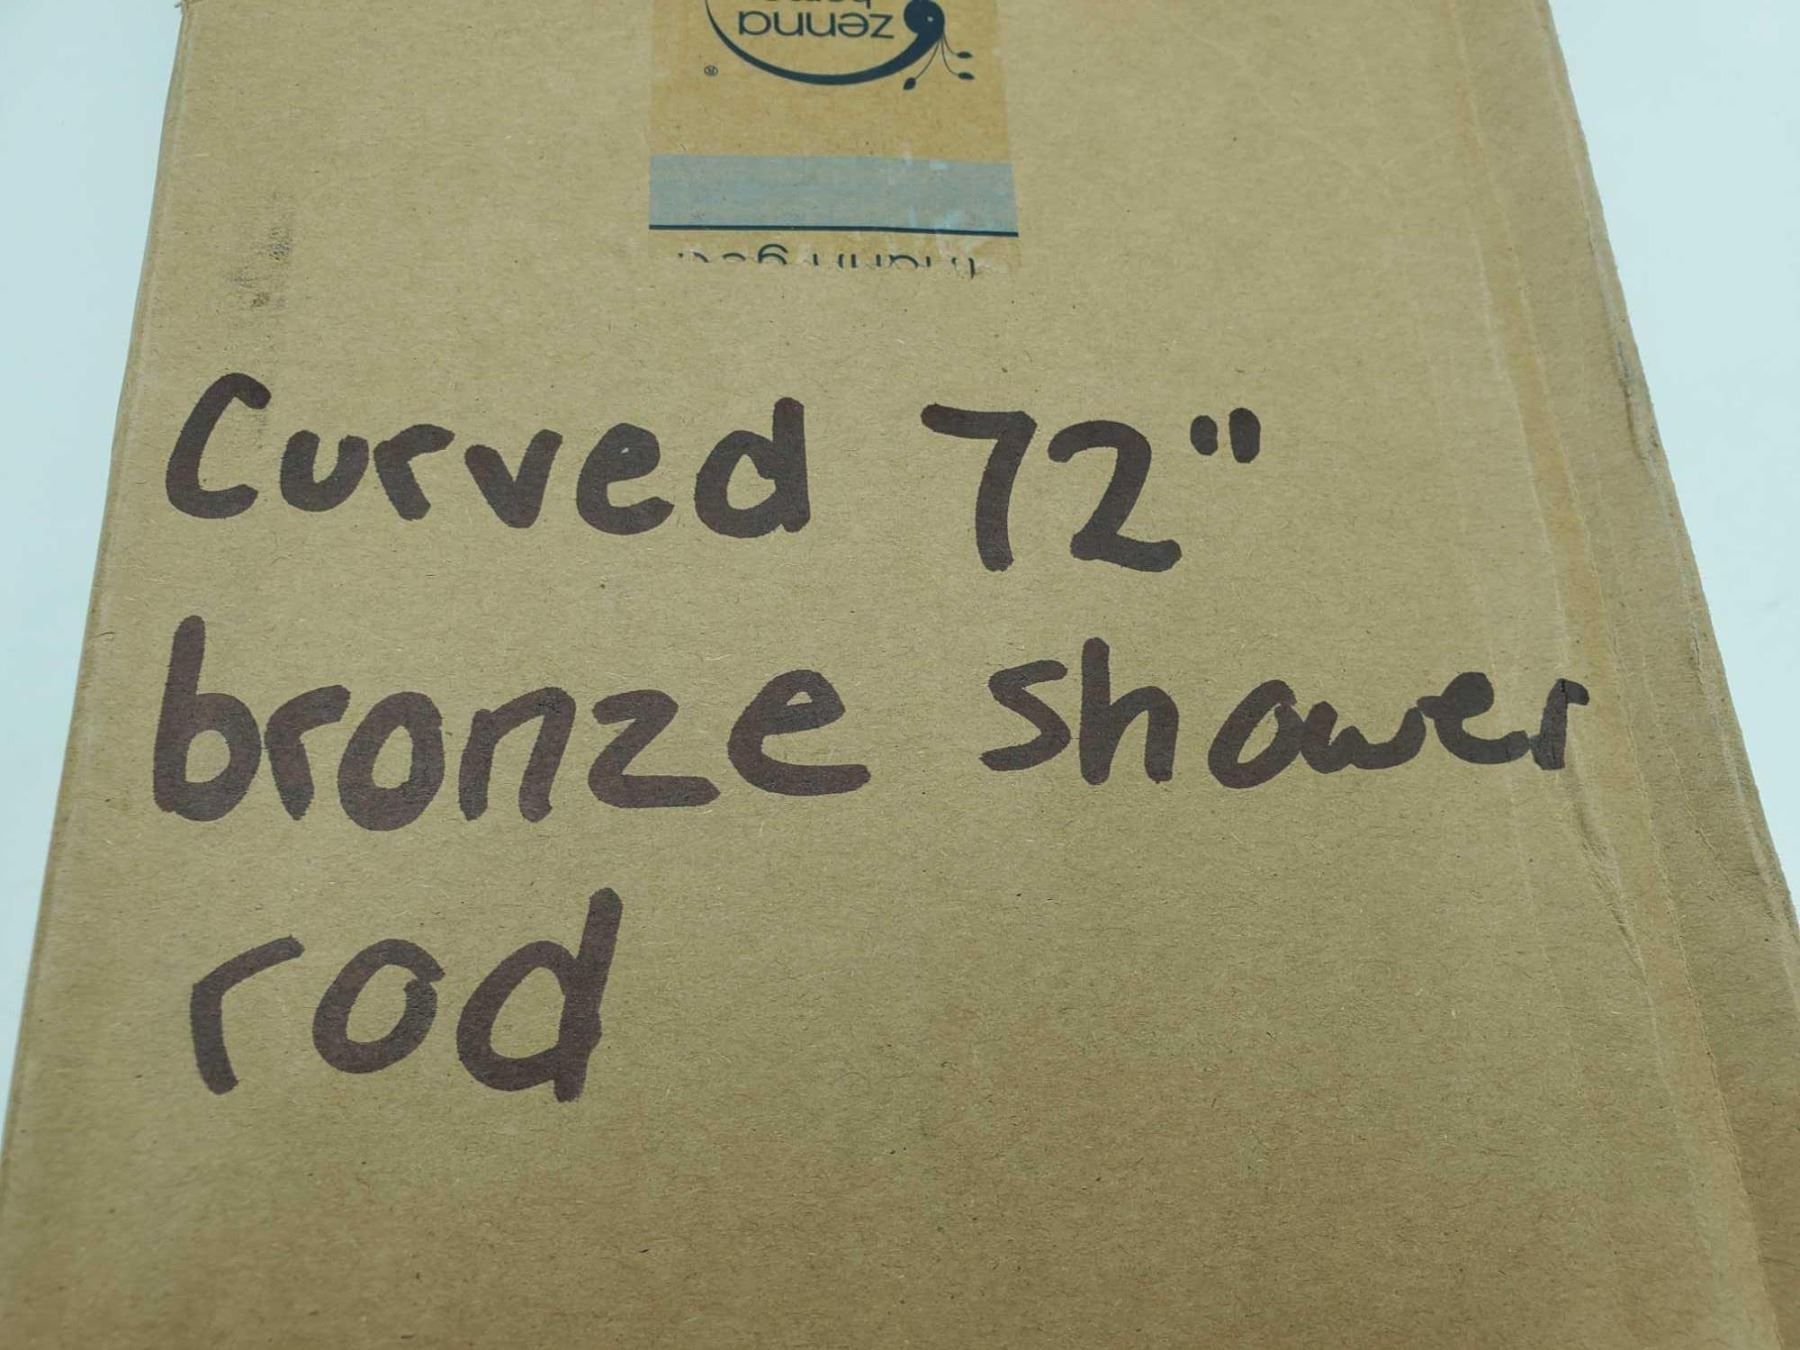 zenna
home
®
Curved 72"
bronze shower
rod